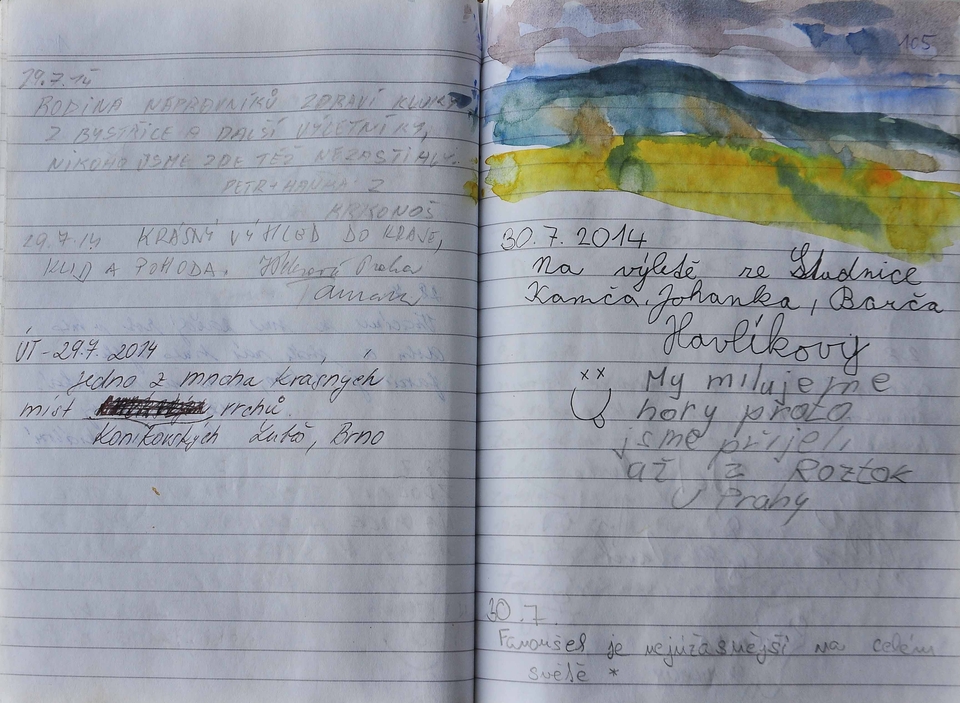 19.7.14
RODINA NÁPRAVNÍKŮ ZDRAVÍ KLUKY
Z BYSTŘICE A DALŠÍ VÝLETNÍKY,
NIKOHO JSME ZDE TÉŽ NEZASTIHLI.
PETR + HANKA Z
KRKONOŠ
29.7.14 KRÁSNÝ VÝHLED DO KRAJE,
KLID A POHODA. Praha
ÚT - 29.7. 2014
Jedno z mnoha krásných
míst vrchů.
Koníkovských Luboš, Brno
105
30.7.2014
Na výletě ze Studnice
Kamča, Johanka, Barča
Havlíkovy
My milujeme
hory proto
jsme přijeli
až z Roztok
U Prahy
30.7.
Fanoušek je nejúžasnější na celém
světě *